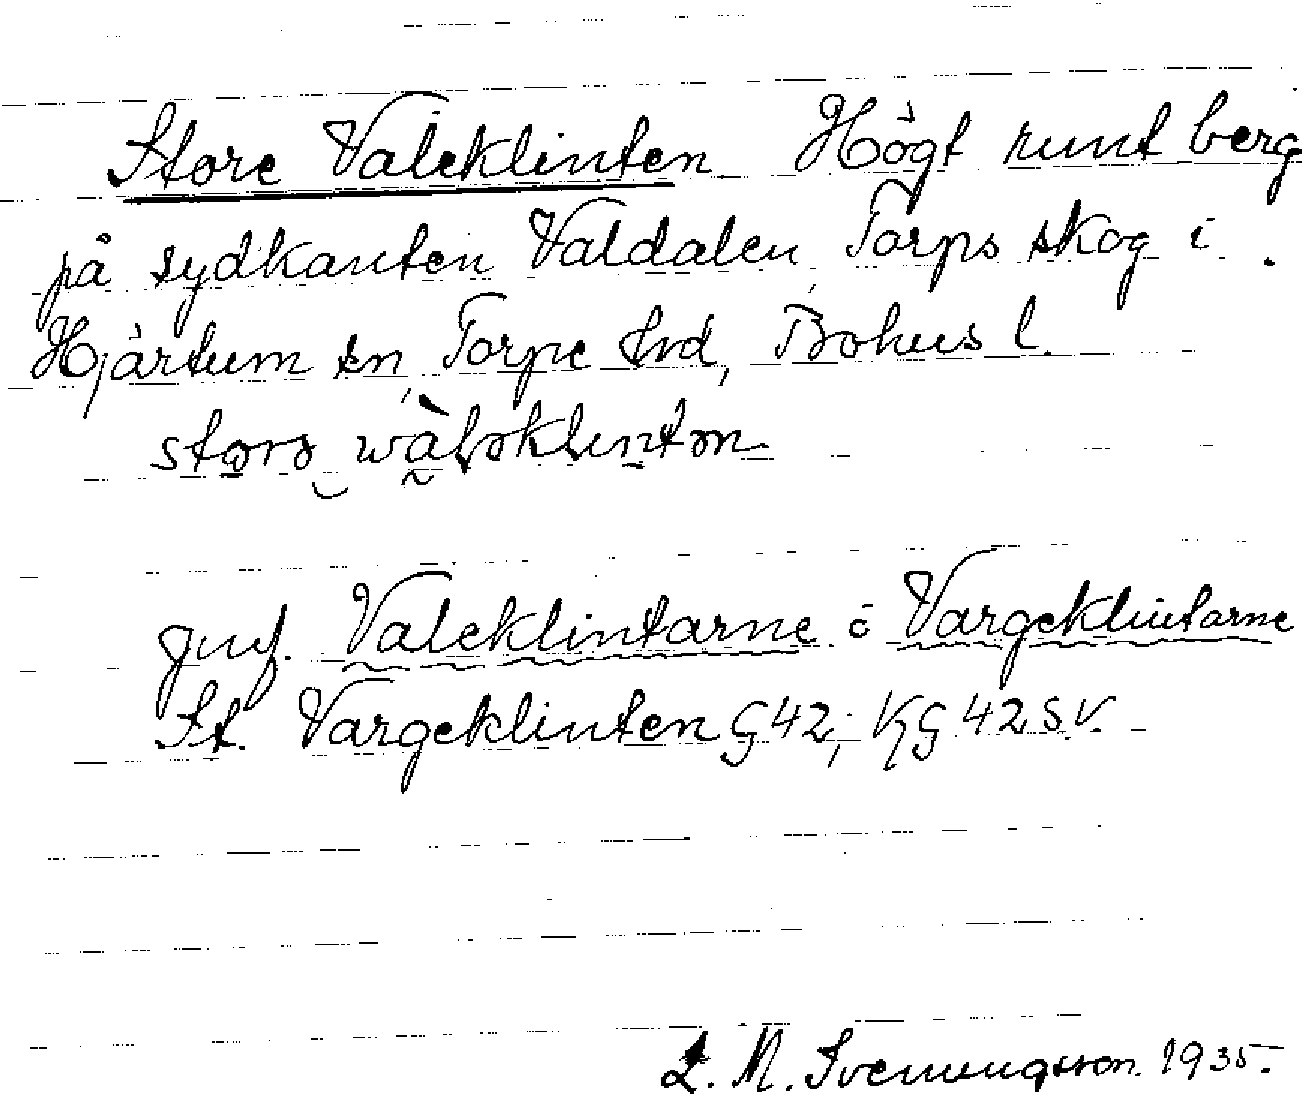 Store Valeklinten Högt runt berg
på sydkanten Valdalen, Torps skog i
Hjärtum sn, Torpe hrd, Bohus l.
storə wàləklintən
jmf. Valeklintarne o Vargeklintarne
St. Vargeklinten G 42; KG 42 S.V.
L. M. Svenungsson. 1935.